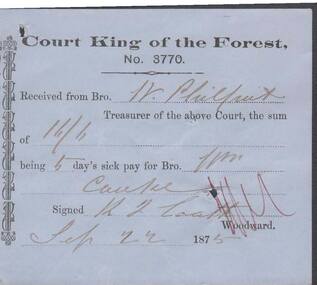 Court King of the Forest,
No. 3770.
Received from Bro. W. Philpot
Treasurer of the above Court, the sum
of 16/6
being 5 day's sick pay for Bro.
Signed
Woodward.
Sep 22 1875